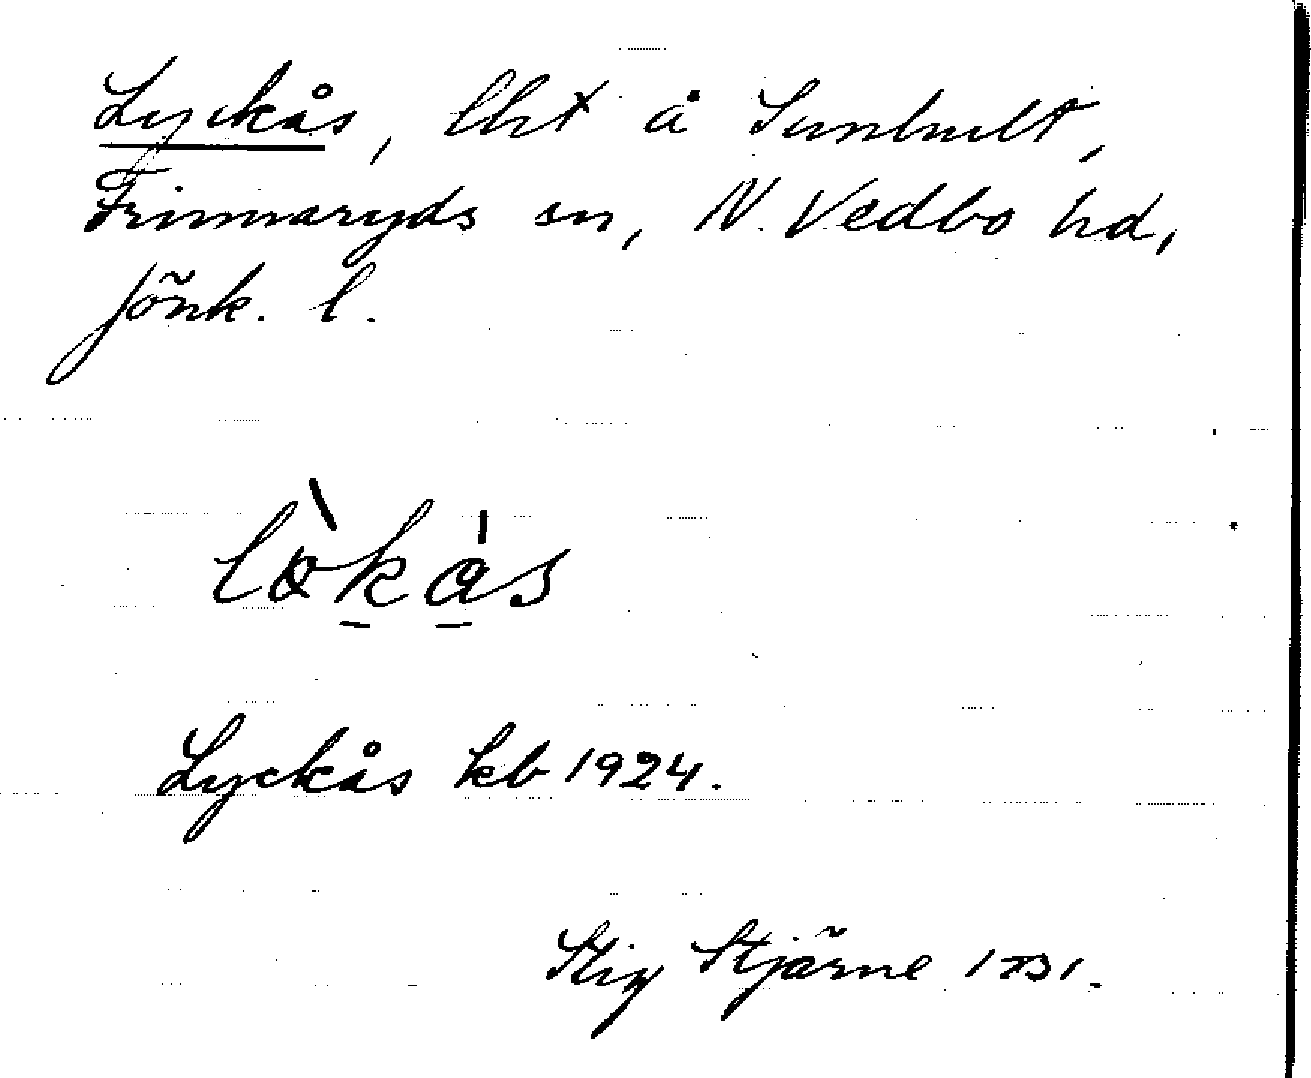 Lyckås, lht å Sunhult,
Frinnaryds sn, N. Vedbo hd,
Jönk. l.
lökås
Lyckås kb 1924.
Stig Stjärne 1931.